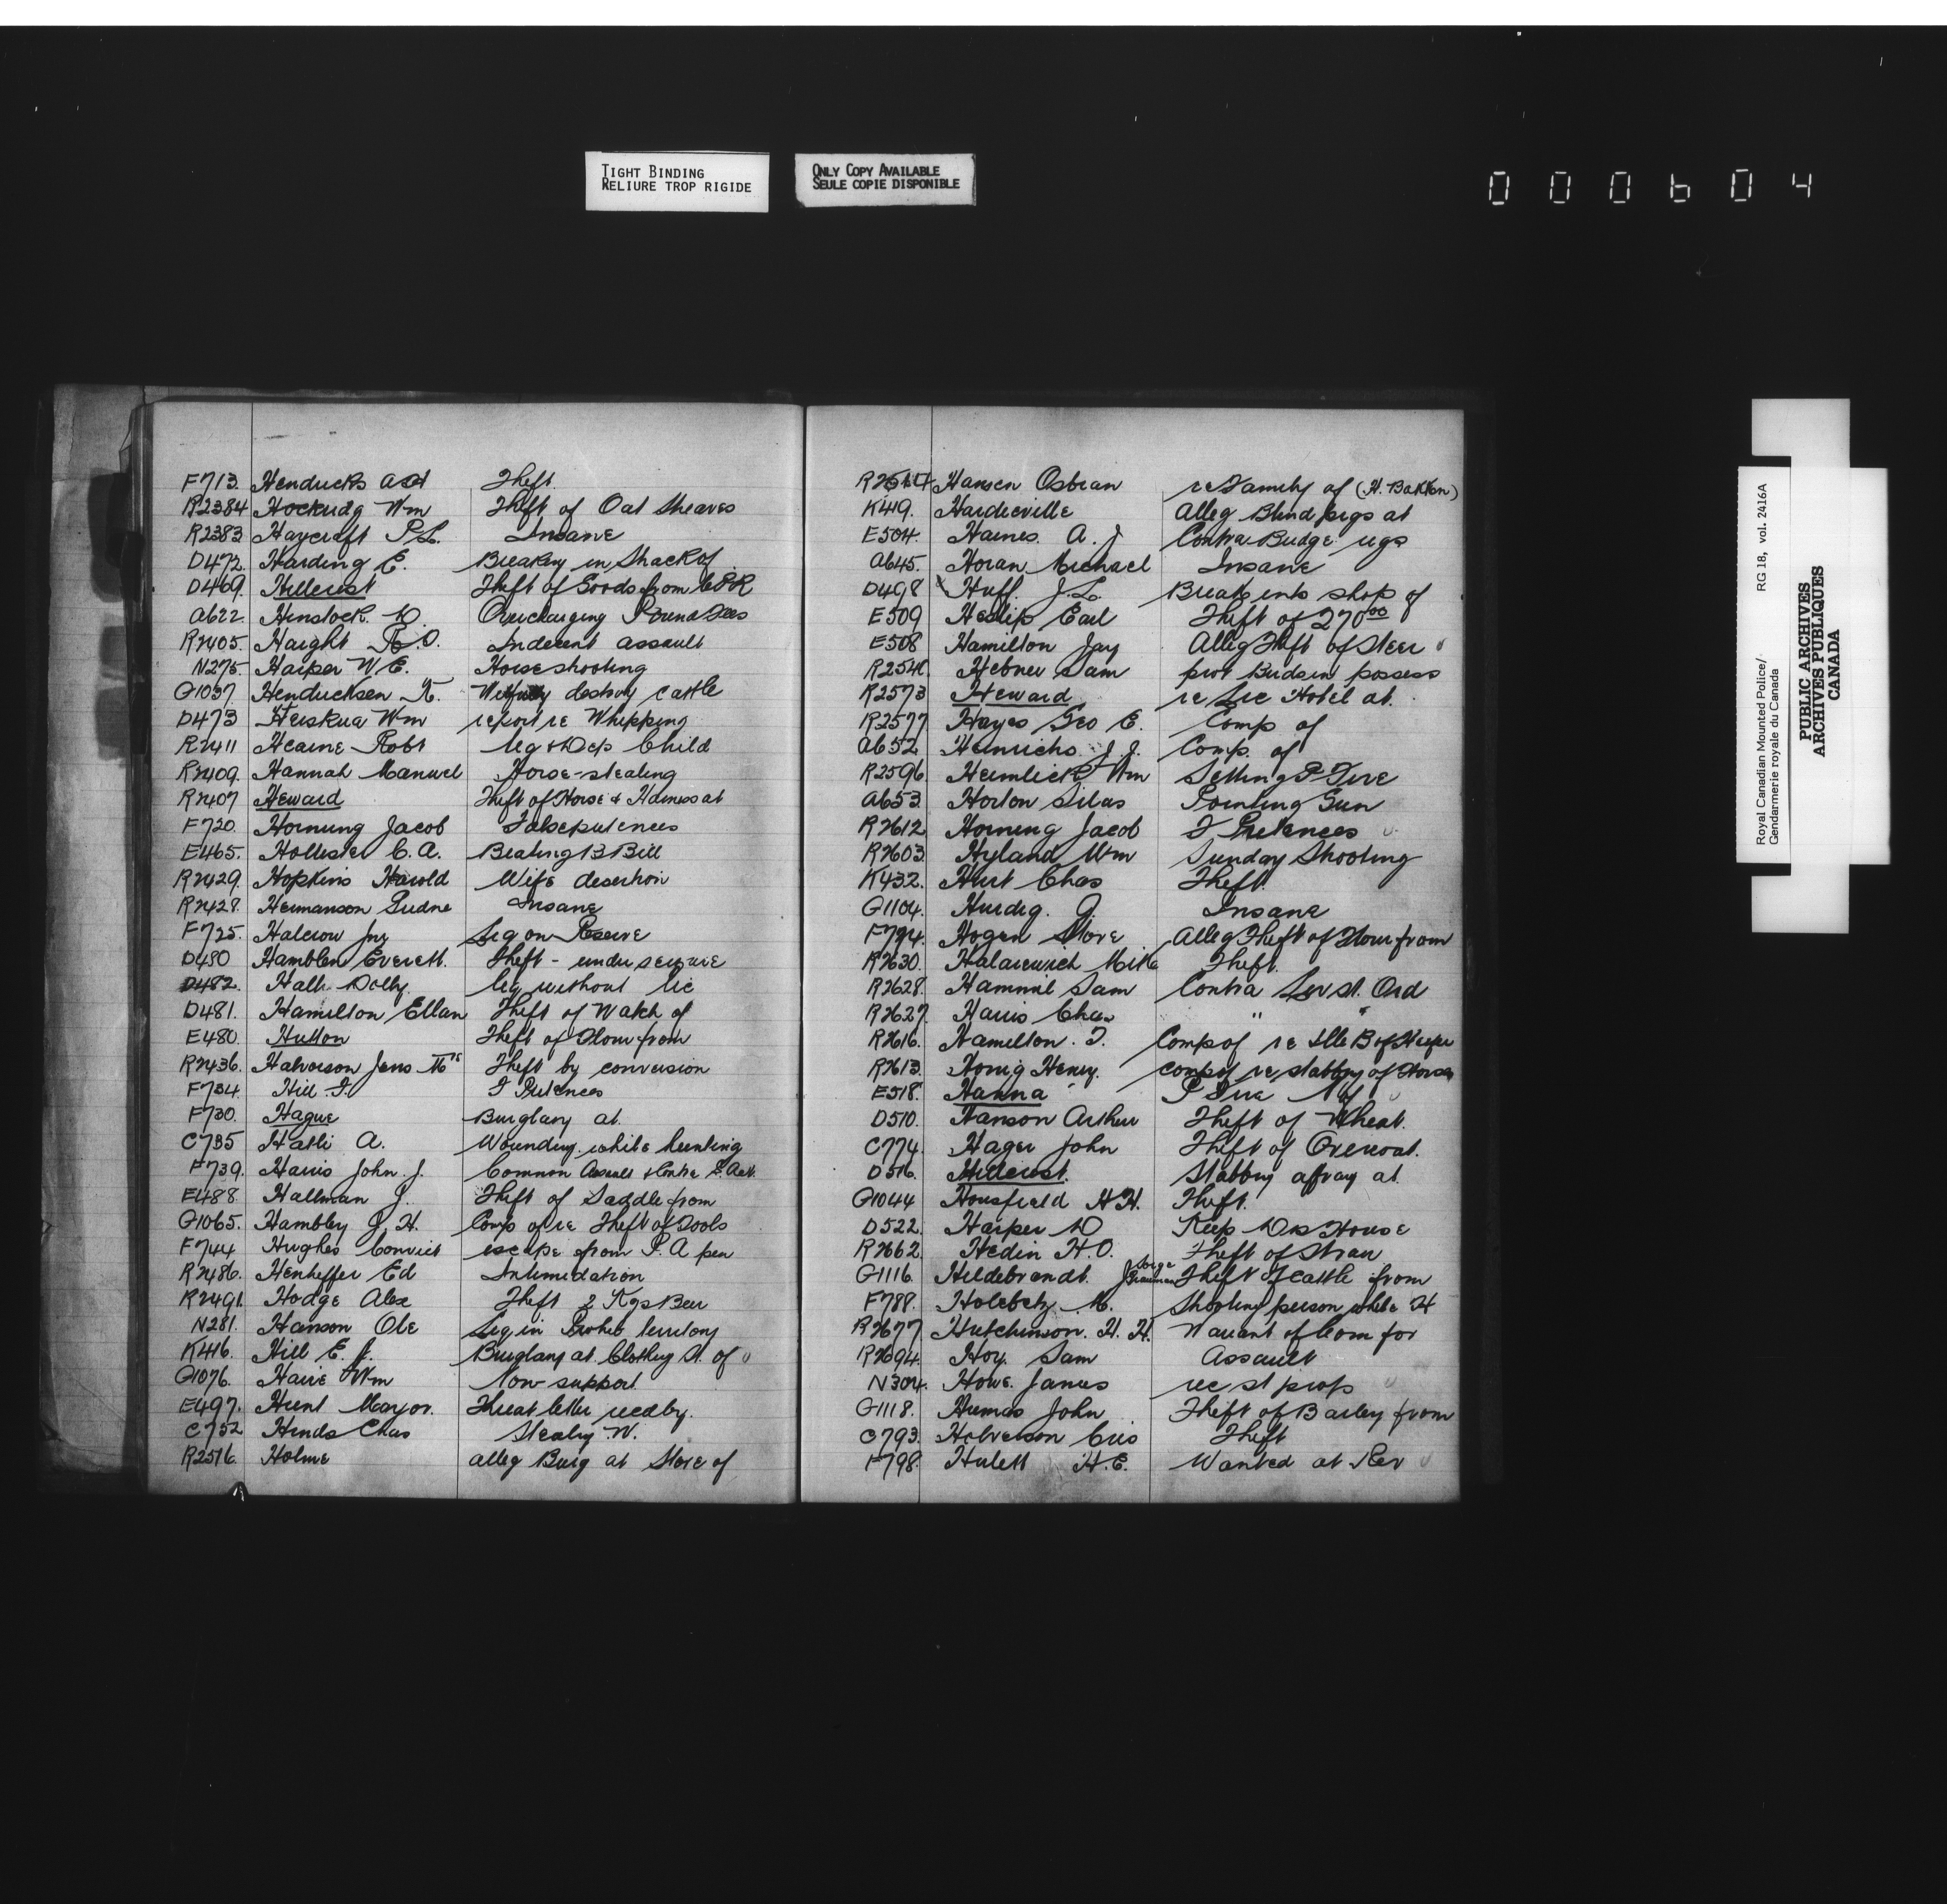 TIGHT BINDING
RELIURE TROP RIGIDE
ONLY COPY AVAILABLE
SEULE COPIE DISPONIBLE
000604
F713. Hendricks Theft
R2384 Hockridg Wm Theft of Oat Sheaves
R2383 Haycroft P.L. Insane
D472. Harding E. Breaking in Shack of
D469. Hillcrest Theft of Goods from CPR
A622. Hinstock. W. Overcharging Pound Fees
R2405. Haight R.O. Indecent assault
N275. Harper W.E. Horse shooting
G1037 Hendricksen K. Wilfully destroy cattle
D473 Wm report re Whipping
R2411 Hearne Robt Neg & Dep Child
R2409. Hannah Manuel Horse-stealing
R2407 Heward Theft of Horse & Harness at
F720. Hornung Jacob False pretences
E465. Hollister C.A. Beating B Bill
R2429. Hopkins Harold Wife desertion
R2428. Hermanson Insane
F725. Halcrow Jny Liq on Reserve
D480 Hamblen Everett. Theft - under seizure
D482. Hall Dolly. liq without lic
D481. Hamilton Ellan Theft of Watch of
E480. Hutton Theft of Flour from
R2436. Halvorson Jens Theft by conversion
F734. Hill F. F Pretences
F730. Hague Burglary at.
C735 Halli A. Wounding while hunting
F739. Harris John J. Common Assault & Contra Act.
E488. Hallman J. Theft of Saddle from
G1065. Hambley J. H. Comp of re Theft of Tools
F744 Hughes Convict escape from P.A pen
R2486. Henheffer Ed Intimidation
R2491. Hodge Alex Theft 2 Kgs Beer
N281. Hanson Ole Liq in Prohib territory
K416. Hill E. J. Burglary at Clothing St. of
G1076. Haire Wm Non-support
E497. Hunt Mayor. Threat letter recd by.
C752 Hinds Chas Stealing W.
R2516. Holme alleg Burg at Store of
Hansen Osbran re Family of (H. Bakken)
K419. Hardieville Alleg Blind pigs at
E504. Haines A. J Contra Budge regs
A645. Horan Michael Insane
D498 Huff. J.L. Break into shop of
E509 Heslip Earl Theft of 270.00
E508 Hamilton Jay Alleg Theft of Steer
R2540. Hebner Sam prot Birds in possess
R2573 Heward re Lic Hotel at.
R2577 Hayes Geo E. Comp of
A652 Heinrichs J J. Comp. of
R2596. Heimlick Wm Setting P Fire
A653 Horton Silas Pointing Gun
R2612 Horning Jacob F Pretences
R2603. Hyland Wm Sunday Shooting
K432. Hurt Chas Theft.
G1104. Hurdig. G. Insane
F794. Hogen Store Alleg Theft of Flour from
R2630. Halarewich Mike Theft.
R2628. Hammil Sam Contra Liv St. Ord
R2627. Harris Chas " "
R2616. Hamilton. T. Comp of re Ille B of Heifer
R2613. Honig Henry. Comp of re stabbing of Horses
E518. Hanna P Fire N of
D510. Hanson Arthur Theft of Wheat.
C774. Hager John Theft of Overcoat.
D516. Hillcrest. Stabbing affray at.
G1044 Housfield H H. Theft.
D522. Harper W Keep Dis House
R2662. Hedin H.O. Theft of Straw
G1116. Hildebrandt. Theft of cattle from
F788. Holebety M. Shooting person while H
R2677 Hutchinson. H. H. Warrant of Com for
R2694. Hoy. Sam Assault
N304. Howe James rec st prop
G1118. Humas John Theft of Barley from
C793. Halverson Cris Theft
F798. Hulett H.E. Wanted at Rev
Royal Canadian Mounted Police/ RG 18, vol. 2416A
Gendarmerie royale du Canada
PUBLIC ARCHIVES
ARCHIVES PUBLIQUES
CANADA